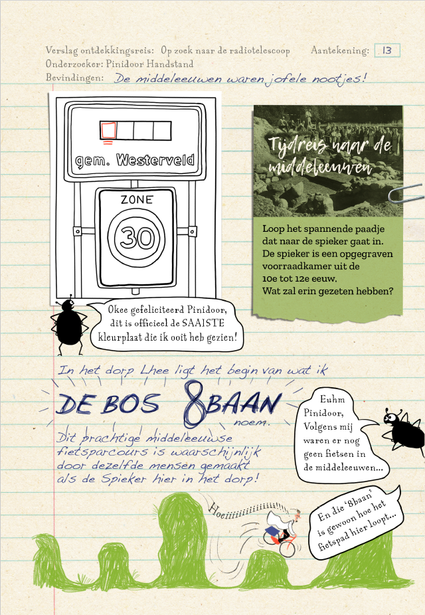 Verslag ontdekkingsreis: Op zoek naar de radiotelescoop Aantekening: 13
Onderzoeker: Pinidoor Handstand
Bevindingen: De middeleeuwen waren jofele nootjes!
gem. Westerveld
ZONE
30
Tijdreis naar de
middeleeuwen
Loop het spannende paadje
dat naar de spieker gaat in.
De spieker is een opgegraven
voorraadkamer uit de
10e tot 12e eeuw.
Wat zal erin gezeten hebben?
Okee gefeliciteerd Pinidoor,
dit is officieel de SAAISTE
kleurplaat die ik ooit heb gezien!
In het dorp Lhee ligt het begin van wat ik
DE BOS 8BAAN
noem.
Dit prachtige middeleeuwse
fietsparcours is waarschijnlijk
door dezelfde mensen gemaakt
als de Spieker hier in het dorp!
Euhm
Pinidoor,
Volgens mij
waren er nog
geen fietsen in
de middeleeuwen...
Hoeiiiiiiiiiiiiiii
En die '8baan'
is gewoon hoe het
fietspad hier loopt...